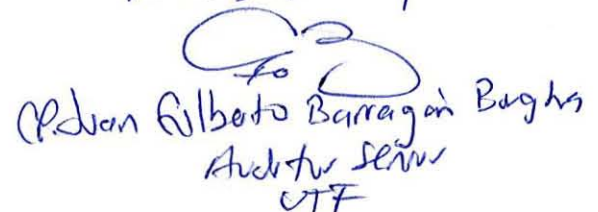 C.P. Juan Fulberto Barragán
Auditor Senior
UTF